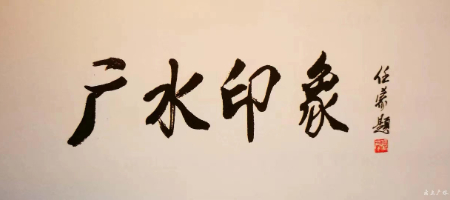 广水印象
任蒙题